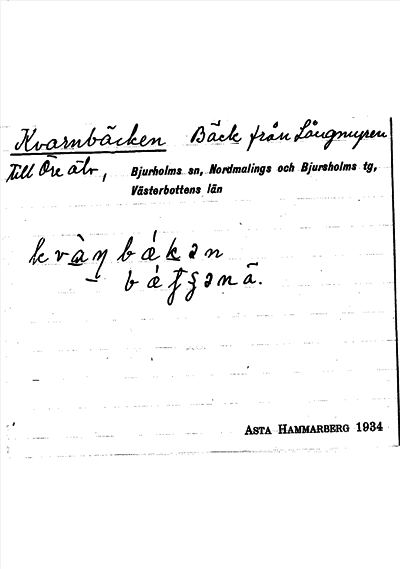 Kvarnbäcken Bäck från Långmyren
till Öre älv, Bjurholms sn, Nordmalings och Bjursholms tg,
Västerbottens län
kvàɳ bǽkən
ASTA HAMMARBERG 1934